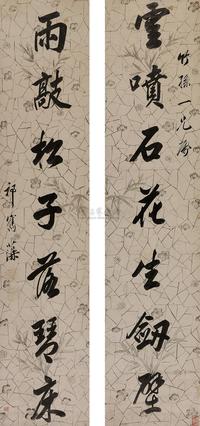 雲噴石花生劒壁
竹孫一兄屬
雨敲松子落琴床
祁寯藻